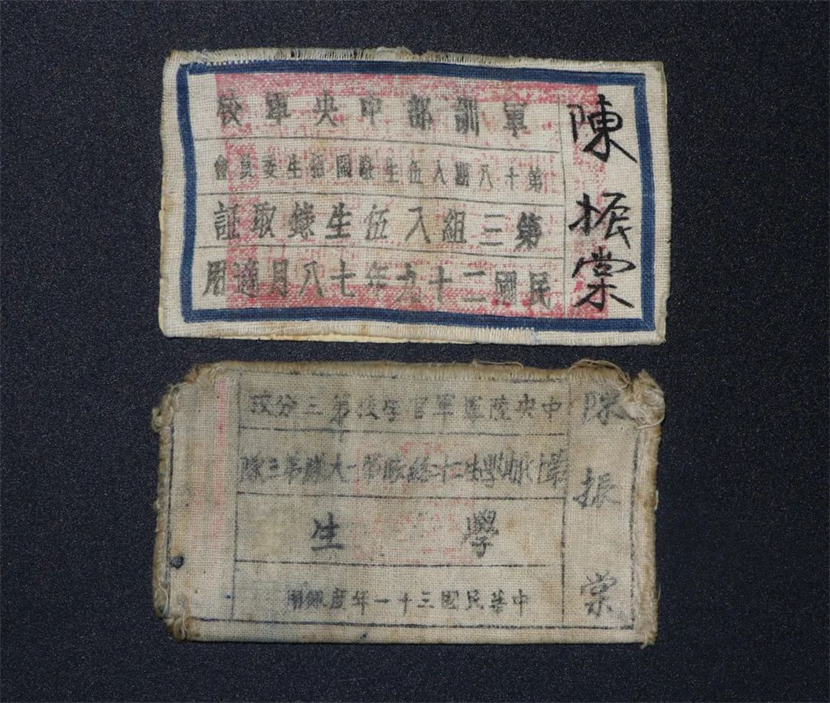 陳振棠
軍訓部中央軍校
第十八期入伍生招生委員會
第三組入伍生錄取証
民國二十九年七八月適用
陳振棠
中央陸軍軍官學校第三分校
第十八期學生總隊第一大隊第三隊
學生
中華民國三十一年度佩用